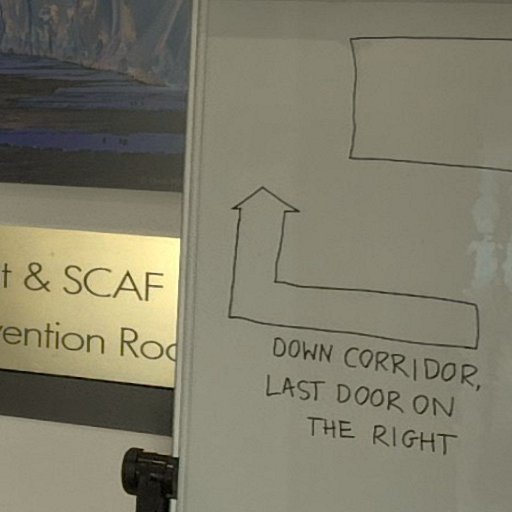 t & SCAF
vention Roo
DOWN CORRIDOR,
LAST DOOR ON
THE RIGHT